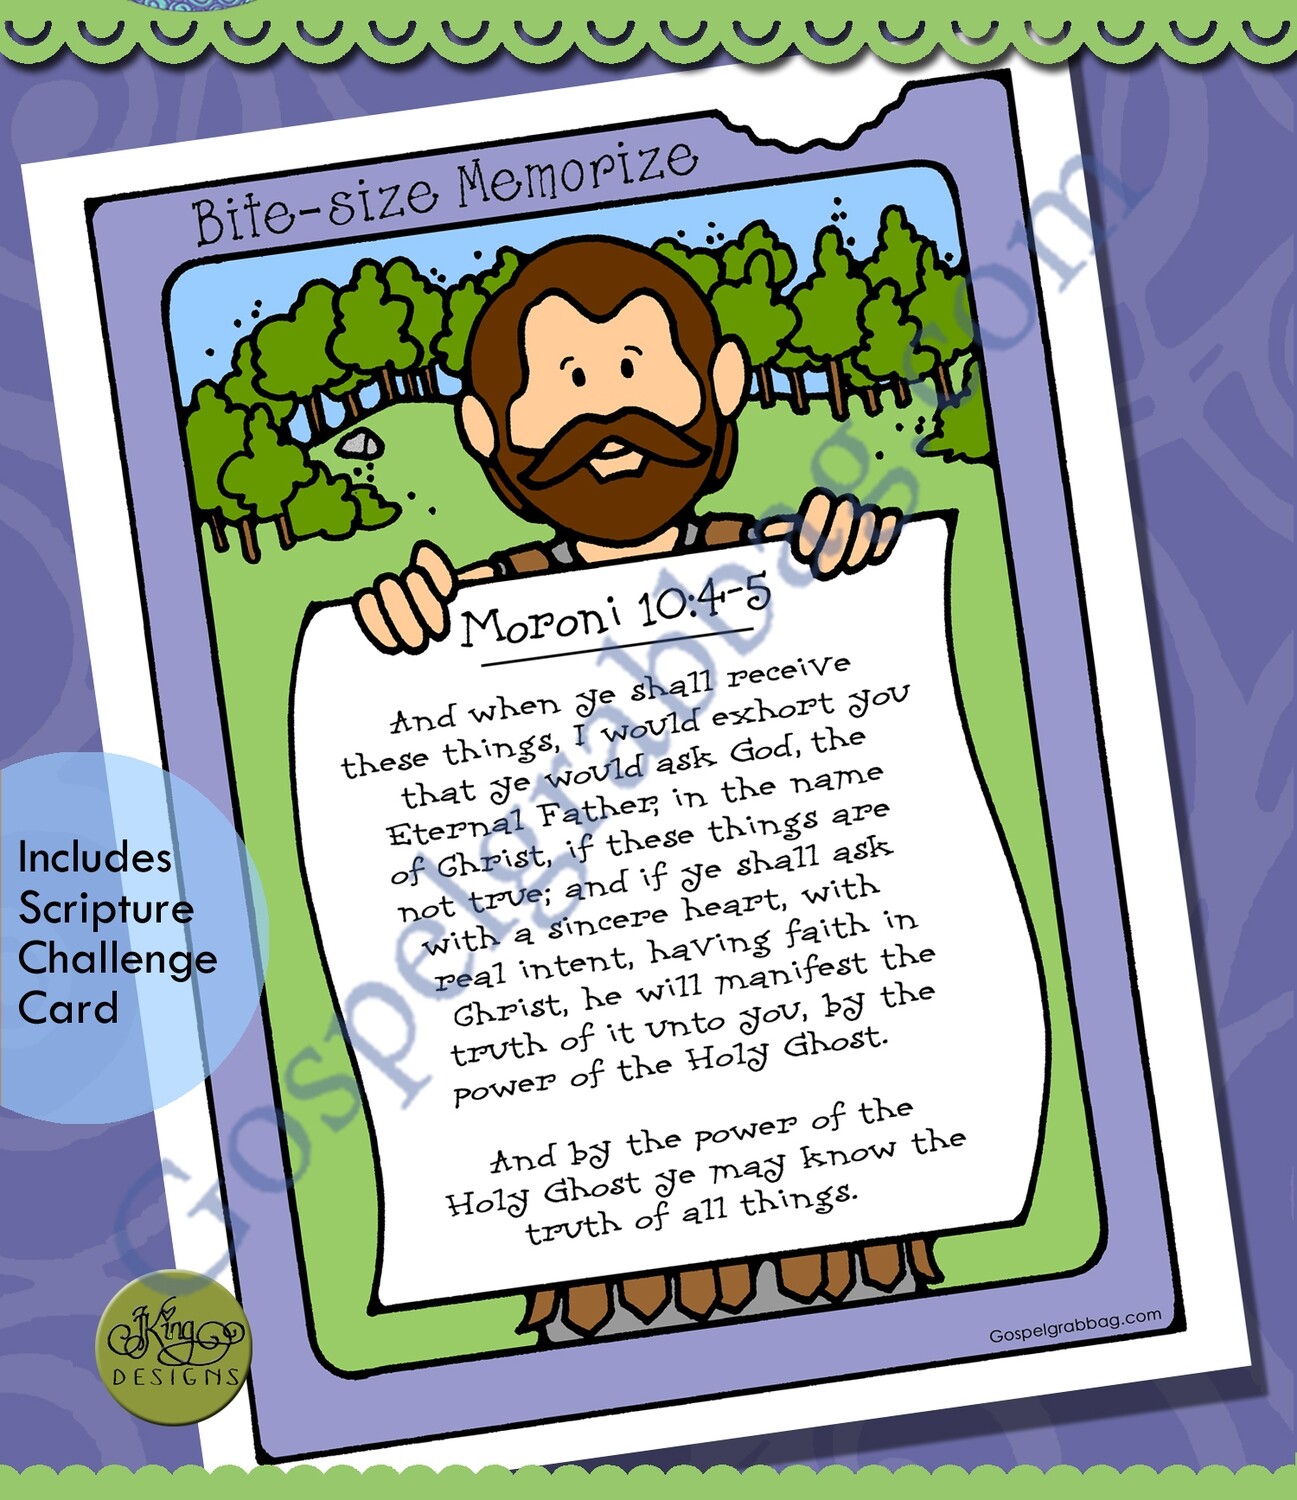 Bite-size Memorize
Moroni 10:4-5
And when ye shall receive
these things, I would exhort you
that ye would ask God, the
Eternal Father, in the name
of Christ, if these things are
not true; and if ye shall ask
with a sincere heart, with
real intent, having faith in
Christ, he will manifest the
truth of it unto you, by the
power of the Holy Ghost.
And by the power of the
Holy Ghost ye may know the
truth of all things.
Includes
Scripture
Challenge
Card
JKing
DESIGNS
Gospelgrabbag.com
Gospelgrabbag.com